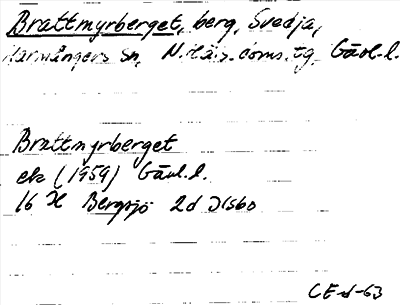 Brattmyrberget, berg, Svedja,
Harmångers sn, N. Häls. doms. tg, Gävl. l.
Brattmyrberget
ek (1959) Gävl. l.
16 H Bergsjö 2d Ilsbo
CE-d-63